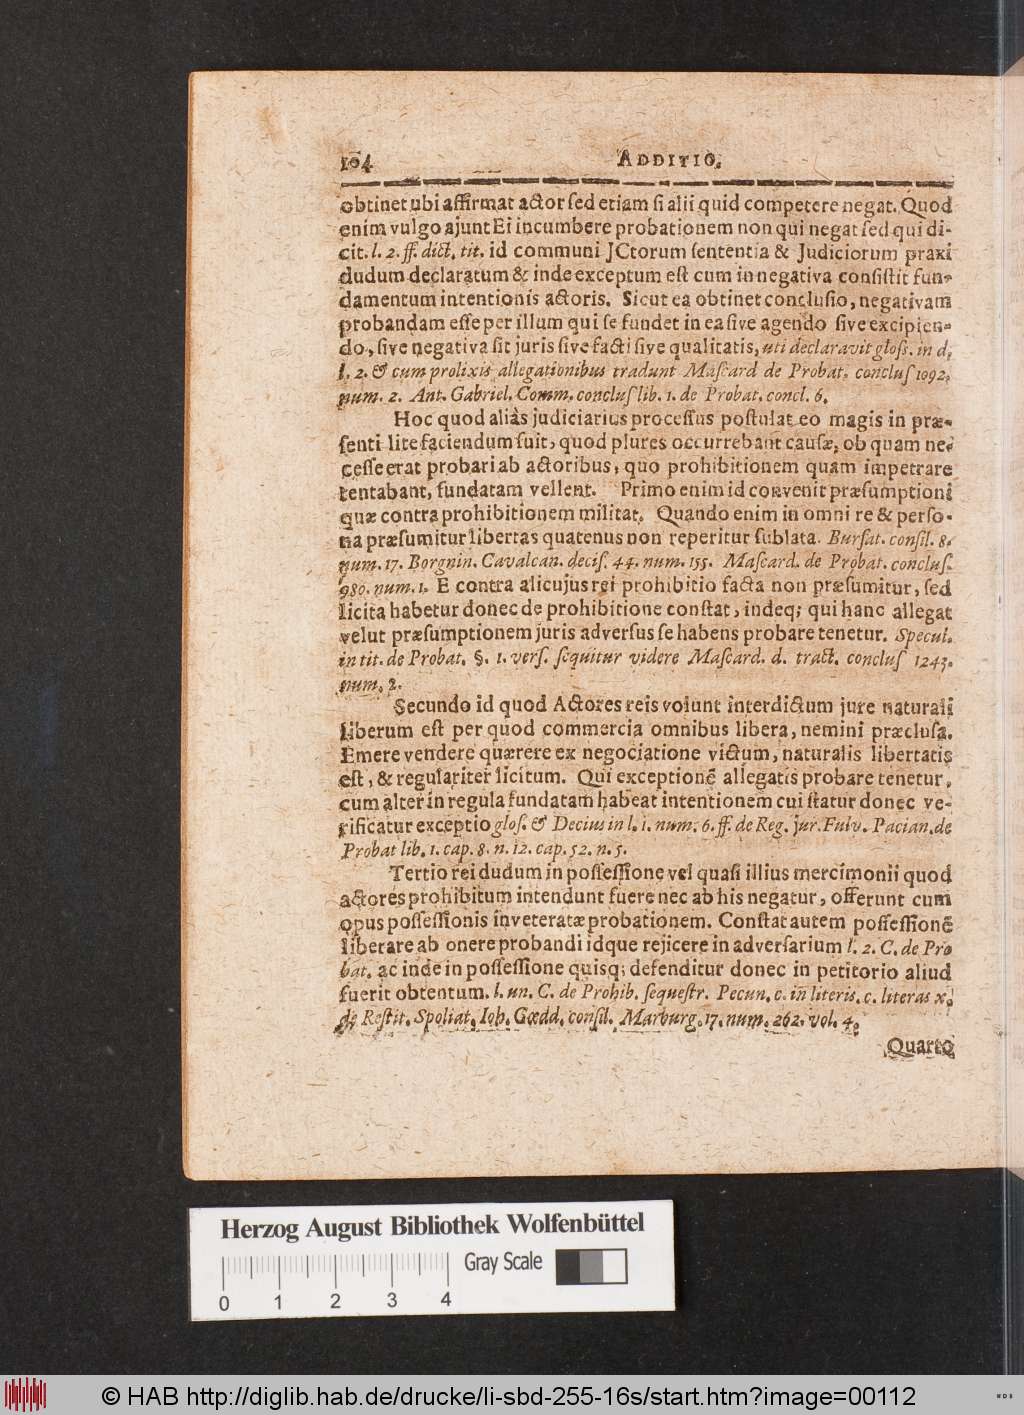 104 ADDITIO.
obtinet ubi affirmat actor sed etiam si alii quid competere negat. Quod
enim vulgo ajunt Ei incumbere probationem non qui negat sed qui di-
cit. l. 2. ff. dict. tit. id communi JCtorum sententia & Judiciorum praxi
dudum declaratum & inde exceptum est cum in negativa consistit fun-
damentum intentionis actoris. Sicut ea obtinet conclusio, negativam
probandam esse per illum qui se fundet in ea sive agendo sive excipien-
do, sive negativa sit juris sive facti sive qualitatis, uti declaravit glos. in d.
l. 2. & cum prolixis allegationibus tradunt Mascard de Probat. conclus 1092.
num. 2. Ant. Gabriel. Comm. conclus lib. 1. de Probat. concl. 6.
Hoc quod aliàs judiciarius processus postulat eo magis in præ-
senti lite faciendum fuit, quod plures occurrebant causæ, ob quam ne-
cesse erat probari ab actoribus, quo prohibitionem quam impetrare
tentabant, fundatam vellent. Primo enim id convenit præsumptioni
quæ contra prohibitionem militat. Quando enim in omni re & perso-
na præsumitur libertas quatenus non reperitur sublata. Bursat. consil. 8.
num. 17. Borgnin. Cavalcan. decis. 44. num. 155. Mascard. de Probat. conclus.
980. num. 1. E contra alicujus rei prohibitio facta non præsumitur, sed
licita habetur donec de prohibitione constat, indeq; qui hanc allegat
velut præsumptionem juris adversus se habens probare tenetur. Specul.
in tit. de Probat. §. 1. vers. sequitur videre Mascard. d. tract. conclus 1243.
num. 2.
Secundo id quod Actores reis volunt interdictum jure naturali
liberum est per quod commercia omnibus libera, nemini præclusa.
Emere vendere quærere ex negociatione victum, naturalis libertatis
est, & regulariter licitum. Qui exceptionẽ allegatis probare tenetur,
cum alter in regula fundatam habeat intentionem cui statur donec ve-
rificatur exceptio glos. & Decius in l. 1. num. 6. ff. de Reg. jur. Fulv. Pacian. de
Probat lib. 1. cap. 8. n. 12. cap. 52. n. 5.
Tertio rei dudum in possessione vel quasi illius mercimonii quod
actores prohibitum intendunt fuere nec ab his negatur, offerunt cum
opus possessionis inveteratæ probationem. Constat autem possessionẽ
liberare ab onere probandi idque rejicere in adversarium l. 2. C. de Pro
bat. ac inde in possessione quisq; defenditur donec in petitorio aliud
fuerit obtentum. l. un. C. de Prohib. sequestr. Pecun. c. in literis. c. literas x.
de Restit. Spoliat. Ioh. Gœdd. consil. Marburg. 17. num. 262. vol. 4.
Quarto
Herzog August Bibliothek Wolfenbüttel
Gray Scale
0 1 2 3 4
© HAB http://diglib.hab.de/drucke/li-sbd-255-16s/start.htm?image=00112
WDB